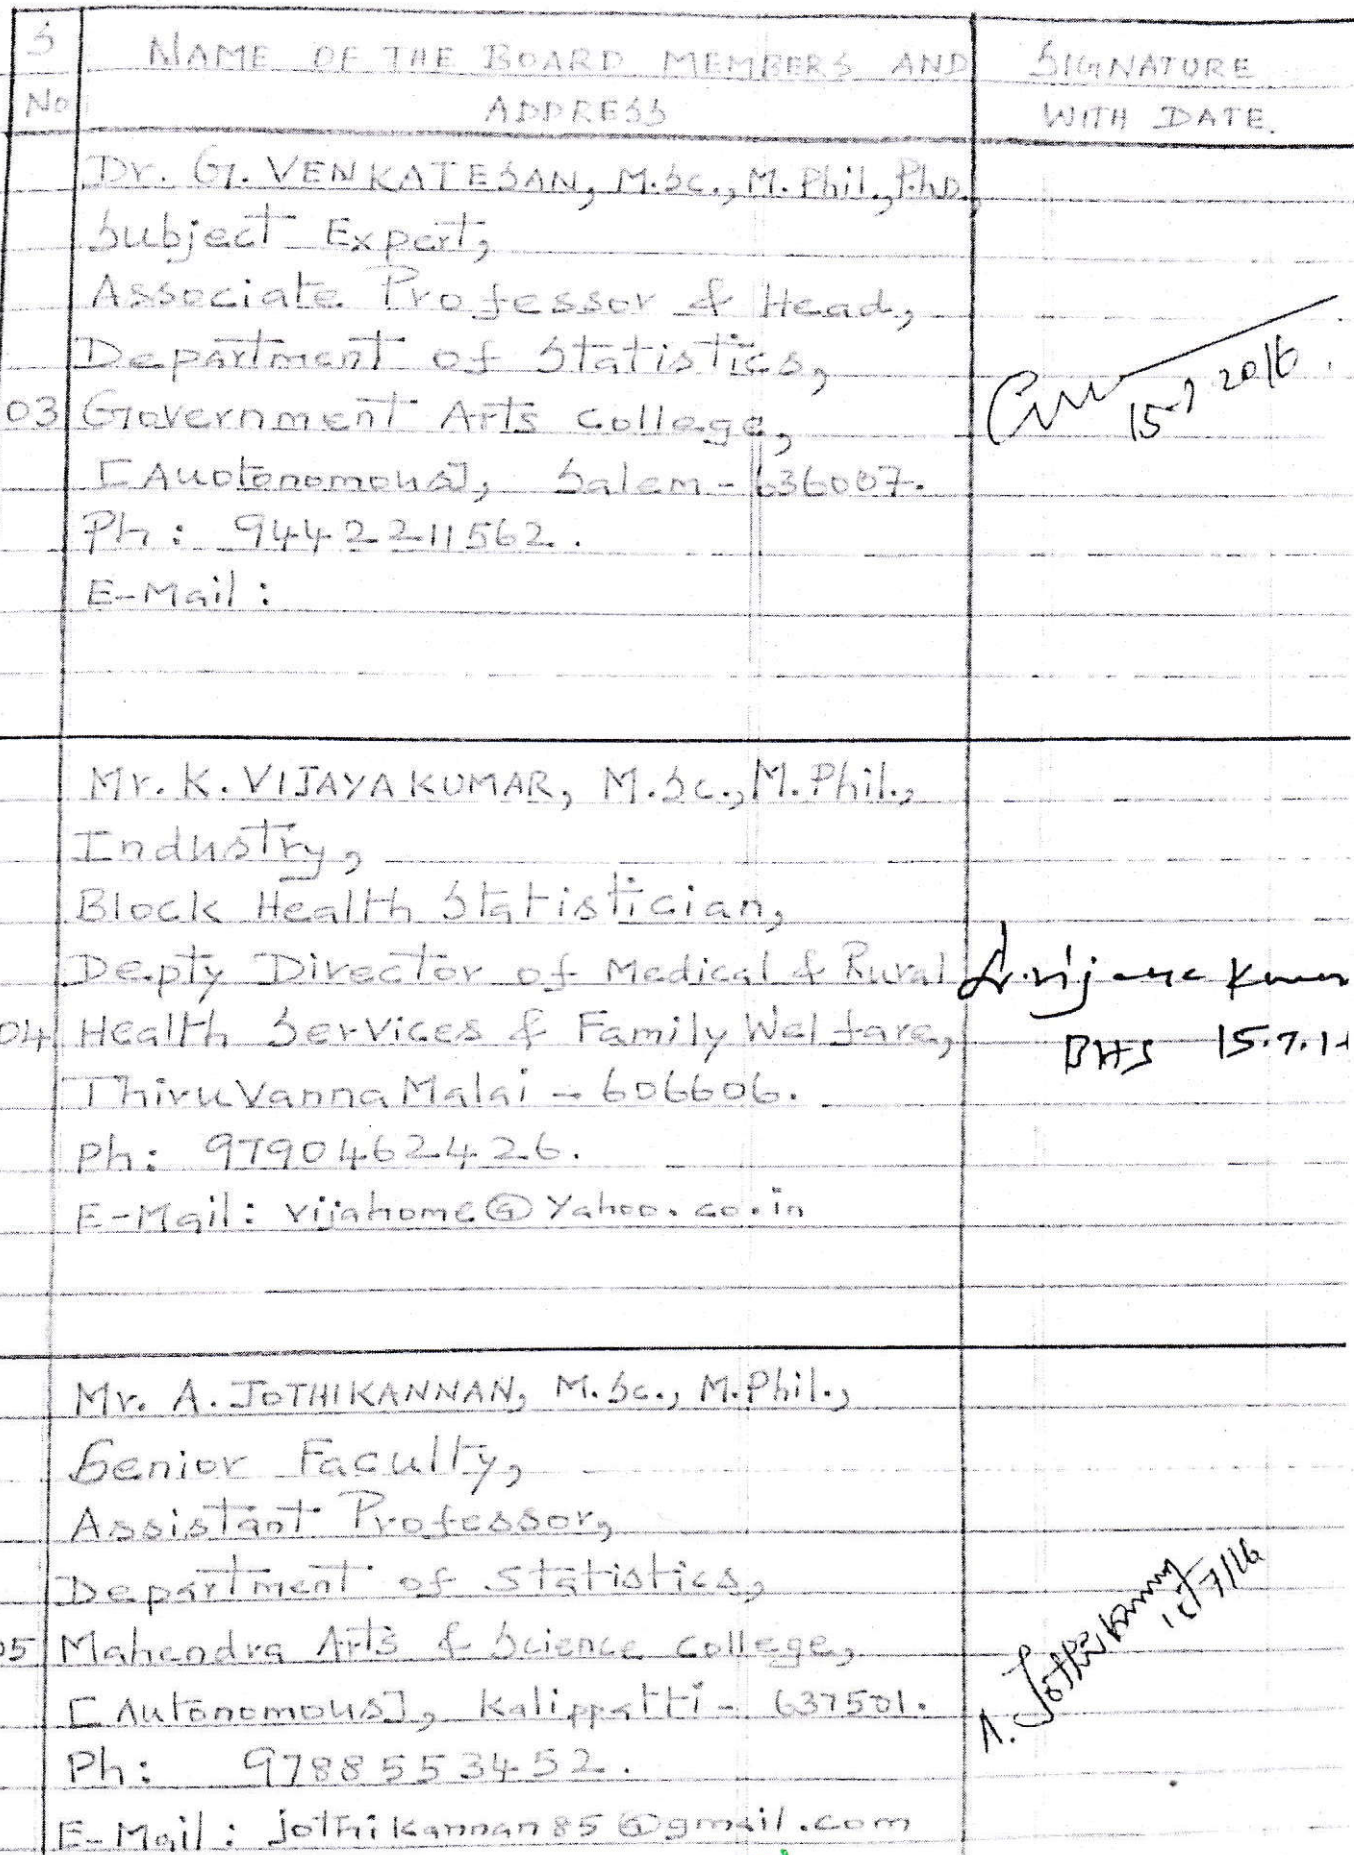 S NAME OF THE BOARD MEMBERS AND SIGNATURE
No ADDRESS WITH DATE.
Dr. G. VENKATESAN, M.Sc., M.Phil., Ph.D.,
Subject Expert,
Associate Professor & Head,
Department of Statistics,
15-7 2016.
03 Government Arts College,
[Auotonomous], Salem - 636007.
Ph: 9442211562.
E-Mail:
Mr. K. VIJAYAKUMAR, M.Sc., M.Phil.,
Industry,
Block Health Statistician,
Depty Director of Medical & Rural
04 Health Services & Family Welfare, BHS 15.7.1
ThiruVannaMalai - 606606.
Ph: 9790462426.
E-Mail: vijahome@Yahoo.co.in
Mr. A. JOTHIKANNAN, M.Sc., M.Phil.,
Senior Faculty,
Assistant Professor,
Department of Statistics,
05 Mahendra Arts & Science College,
[Autonomous], Kalippatti - 637501.
A. Jothikannan 15/7/16
Ph: 9788553452.
E-Mail: jothikannan85@gmail.com